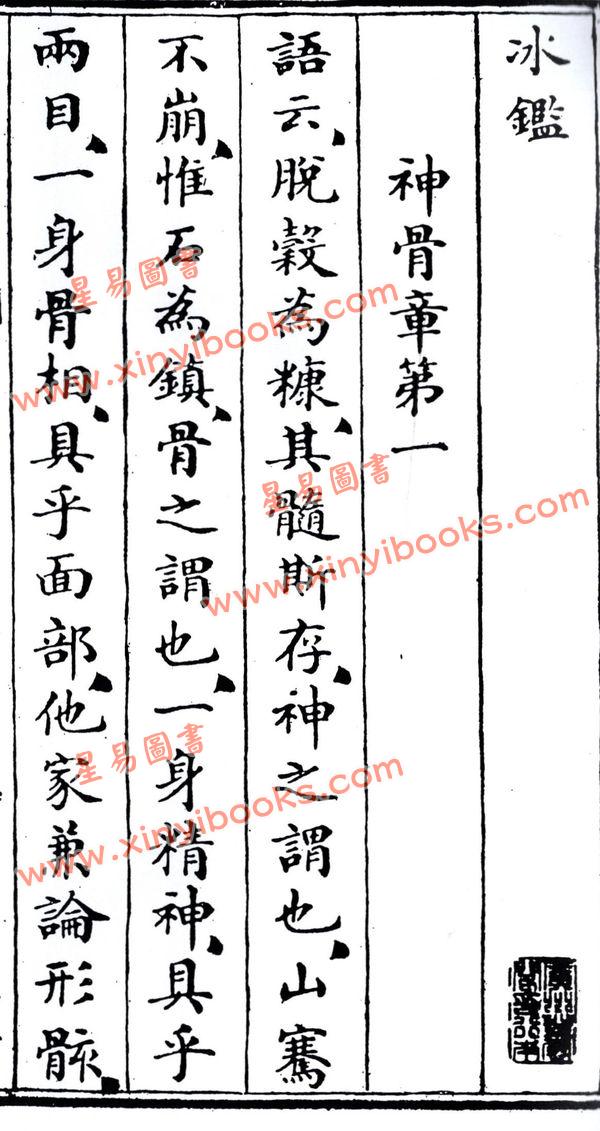 冰鑑
神骨章第一
語云、脫穀為糠、其髓斯存、神之謂也、山騫
不崩、惟石為鎮、骨之謂也、一身精神、具乎
兩目、一身骨相、具乎面部、他家兼論形骸、
星易圖書
www.xinyibooks.com
星易圖書
www.xinyibooks.com
星易圖書
www.xinyibooks.com